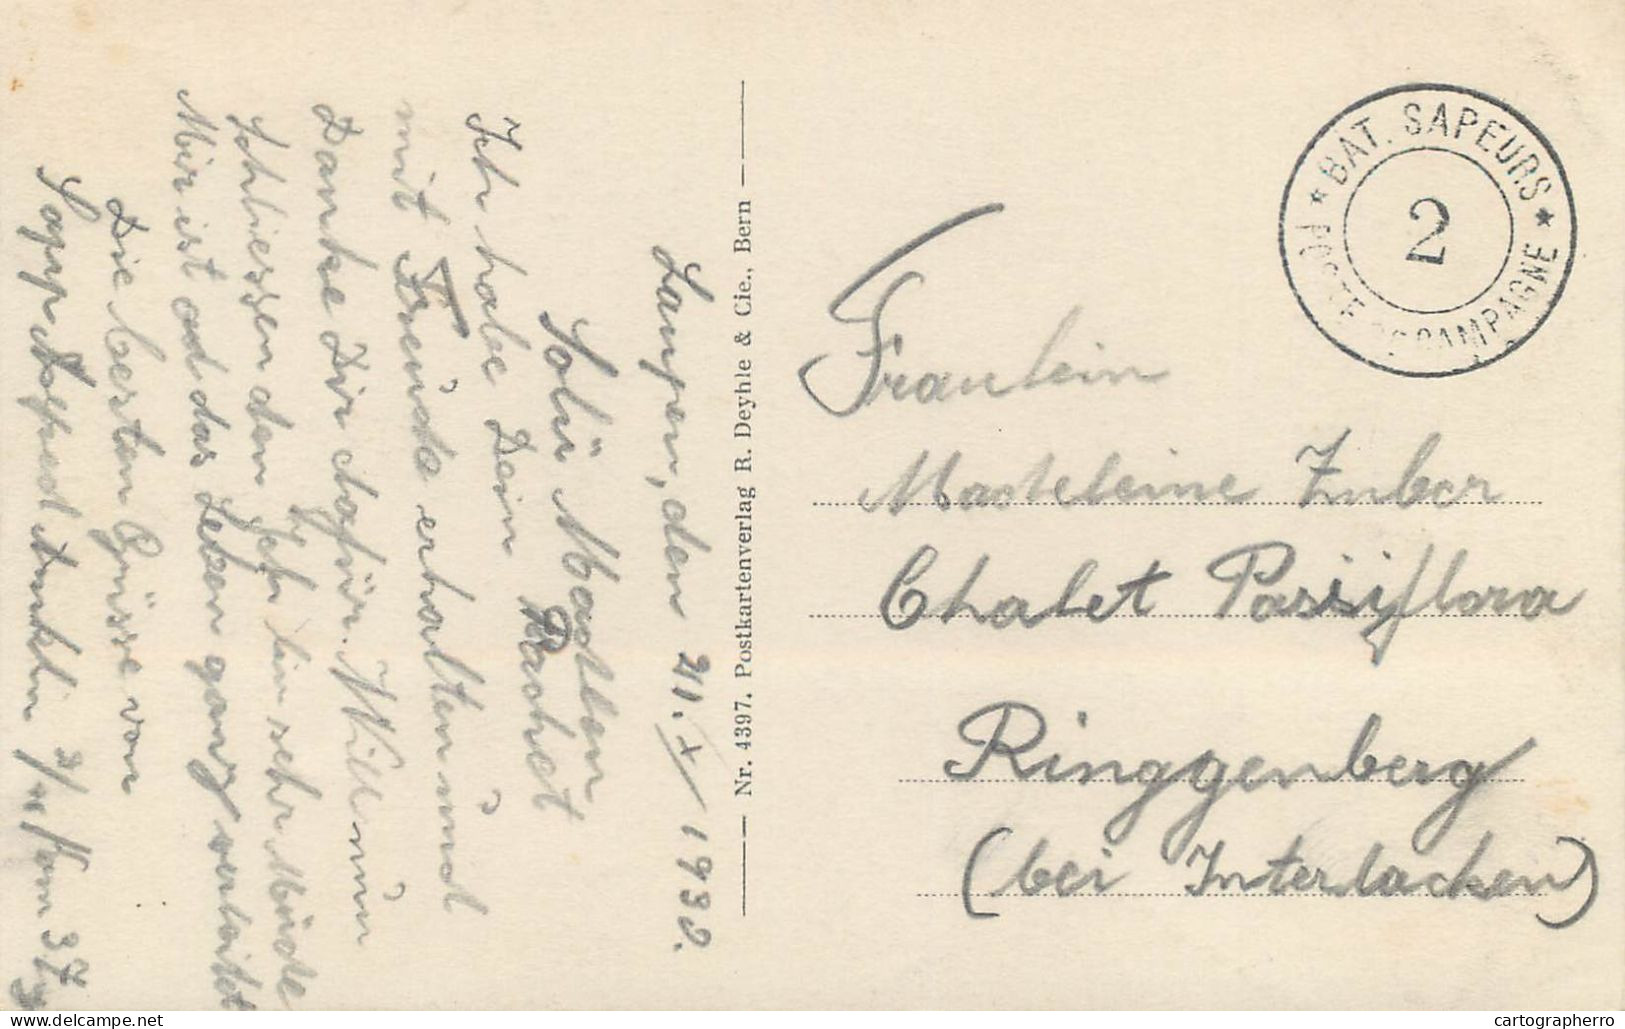 Laupen, den 21. X / 1938.
Sali Madlen
Ich habe Dein
mit Freude erhalten und
Danke Dir dafür. Will nun
Schliessen den Ich bin sehr Müde
Mir ist das Leben ganz verleidet
Die besten Grüsse von
Nr. 4397. Postkartenverlag R. Deyhle & Cie., Bern
* BAT. SAPEURS *
2
POSTE DE CAMPAGNE
Fraulein
Madeleine Zuber
Chalet Passiflora
Ringgenberg
(bei Interlacken)
cartographerro
DELCAMPE.NET